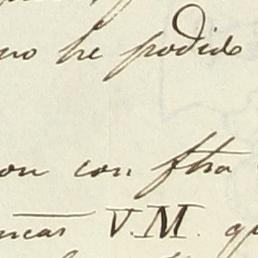 no he podido
on con ftra
ncas V.M. qu